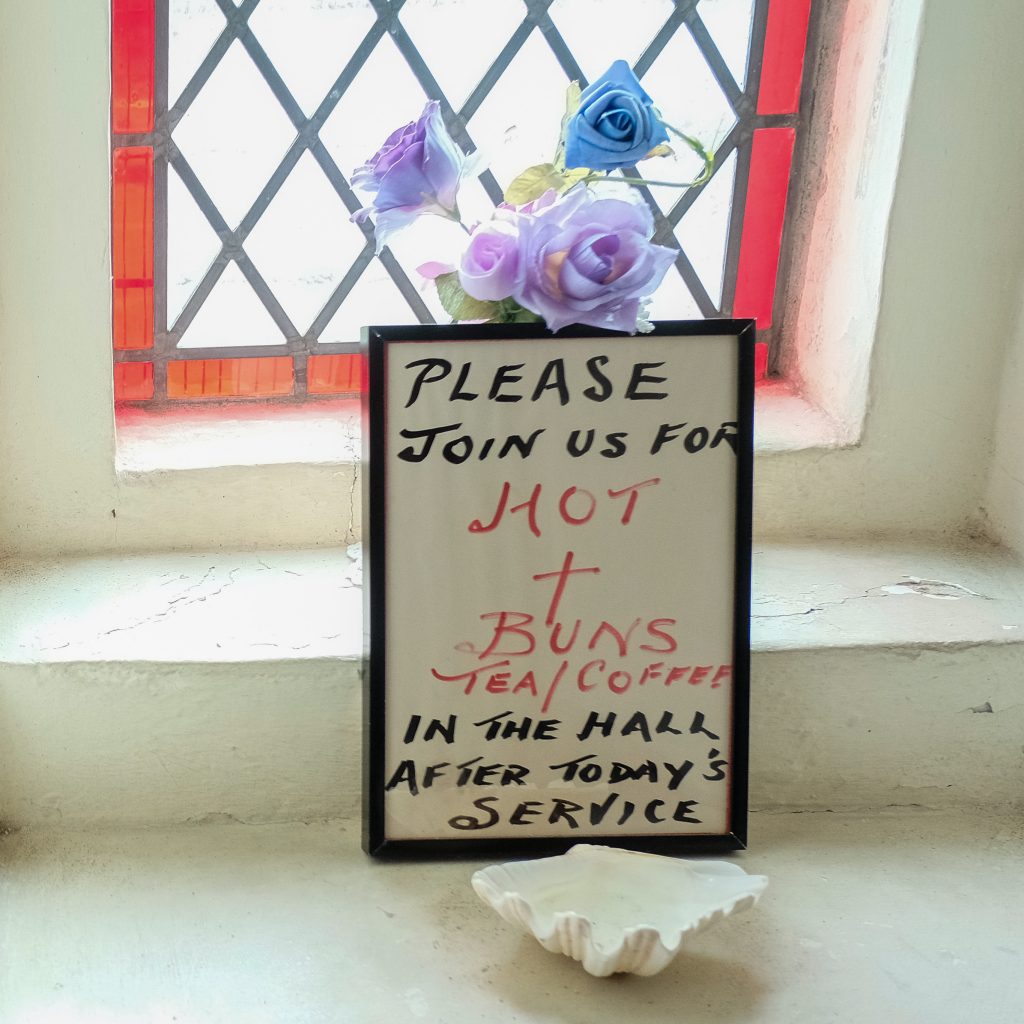 PLEASE
JOIN US FOR
HOT
†
BUNS
TEA/COFFEE
IN THE HALL
AFTER TODAY'S
SERVICE